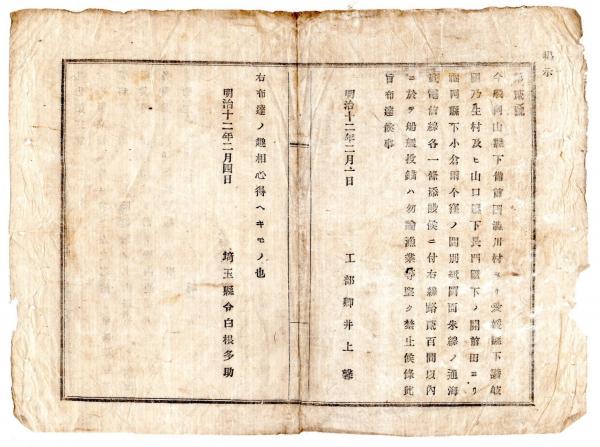 掲示
第貳號
今般岡山縣下備前國澁川村ヨリ愛媛縣下讃岐
國乃生村及ヒ山口縣下長門國下ノ關前田ヨリ
福岡縣下小倉
海底電信線各一條添設候ニ付右線路貳百間以內
ニ於テ船艦投錨ハ勿論漁業等堅ク禁止候條此
旨布達候事
明治十二年二月一日
工部卿井上馨
右布達ノ趣相心得ヘキモノ也
明治十二年二月四日
埼玉縣令白根多助